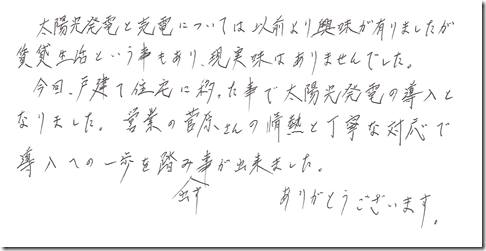 太陽光発電と売電については以前より興味が有りましたが
賃貸生活という事もあり、現実味はありませんでした。
今回、戸建て住宅に移った事で太陽光発電の導入と
なりました。営業の菅原さんの情熱と丁寧な対応で
導入への一歩を踏み事が出来ました。
出す
ありがとうございます。